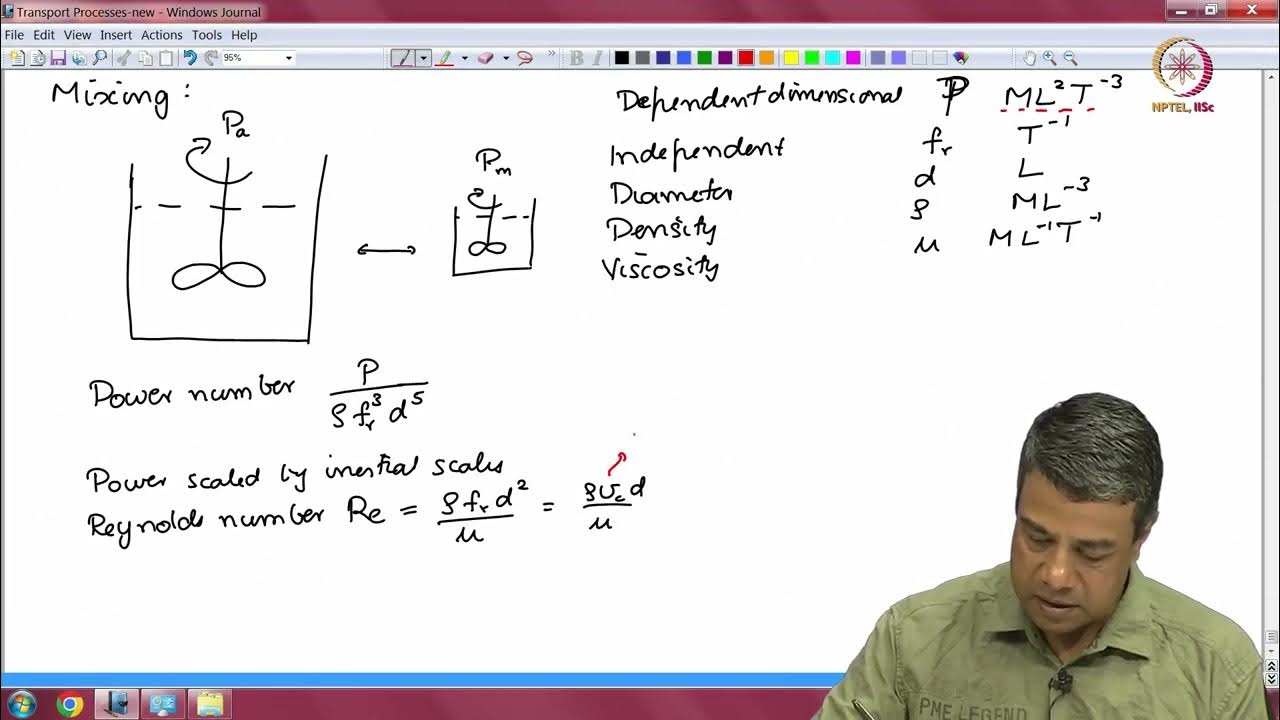 Transport Processes-new - Windows Journal
File Edit View Insert Actions Tools Help
95%
NPTEL, IISc
Mixing :
Dependent dimensional P ML²T⁻³
Independent fᵣ T⁻¹
Diameter d L
Density ρ ML⁻³
Viscosity μ ML⁻¹T⁻¹
Pₐ
Pₘ
Power number P / ρ fᵣ³ d⁵
Power scaled by inertial scales
Reynolds number Re = ρ fᵣ d² / μ = ρ v_c d / μ
PME LEGEND